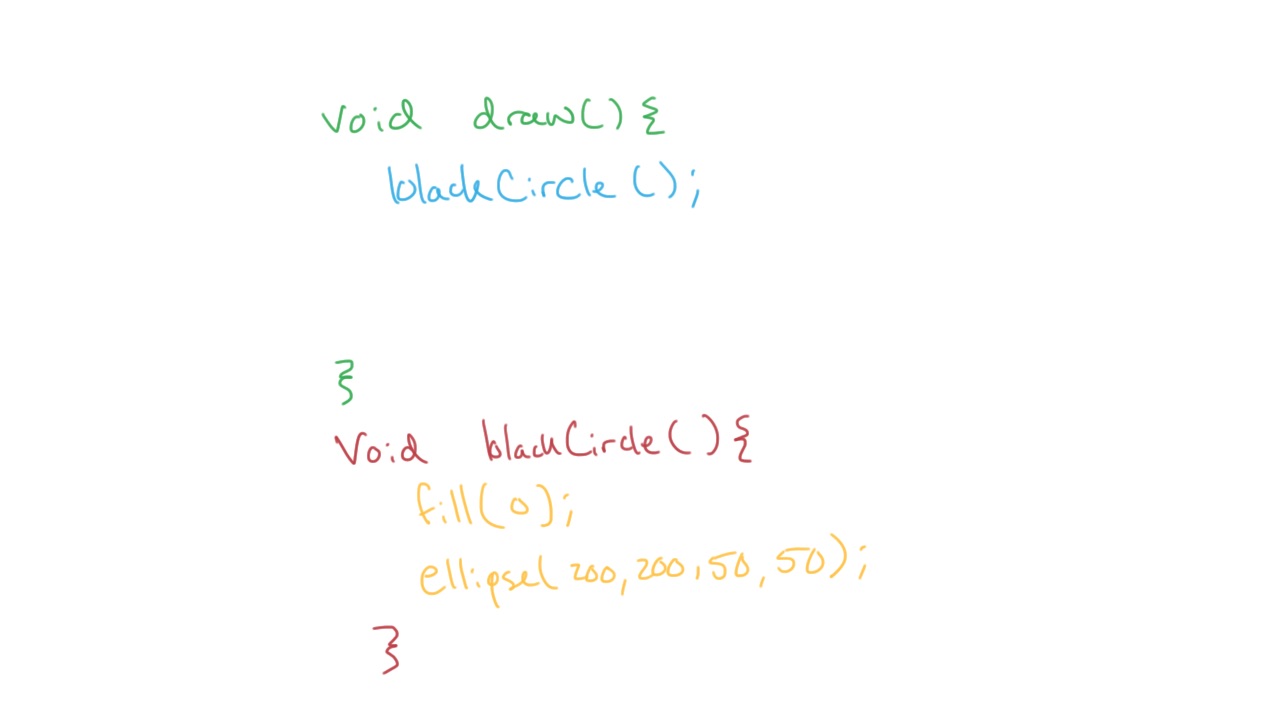 void draw(){
blackCircle();
}
void blackCircle(){
fill(0);
ellipse(200,200,50,50);
}